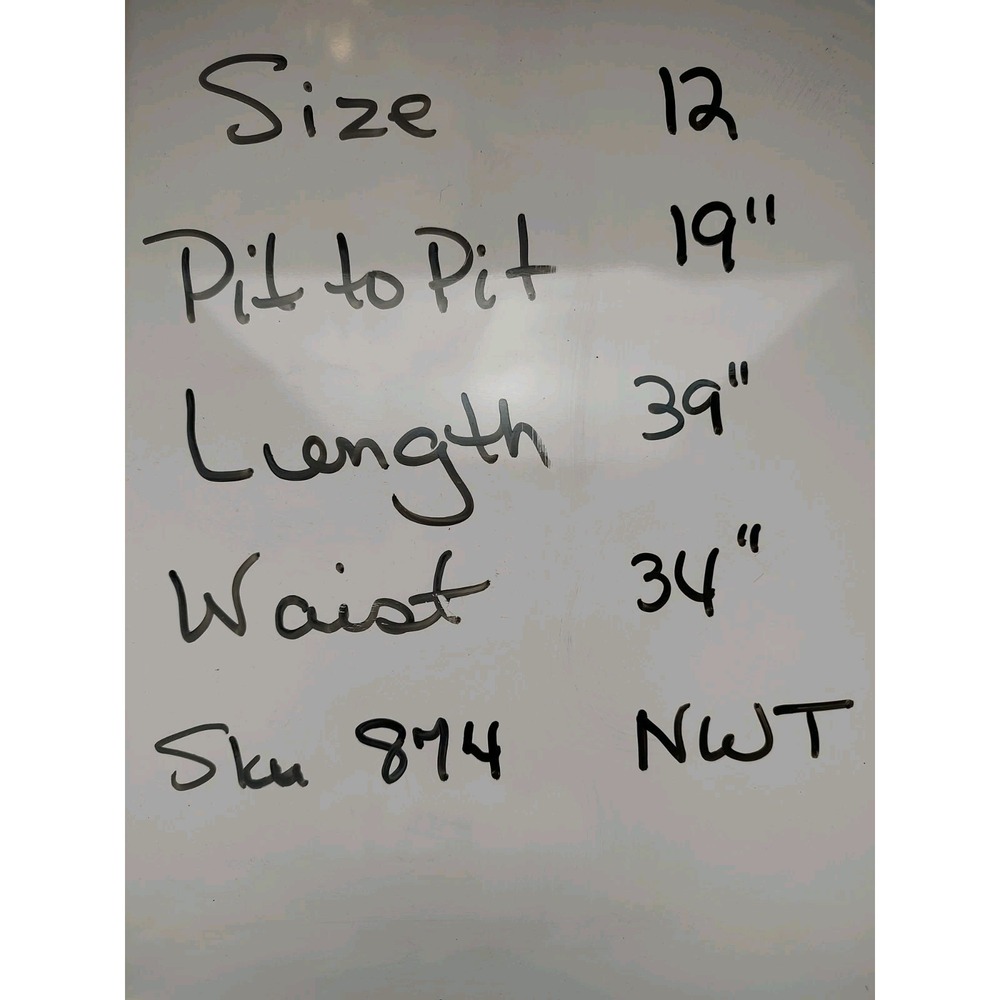 Size 12
Pit to Pit 19"
Length 39"
Waist 34"
Sku 874 NWT